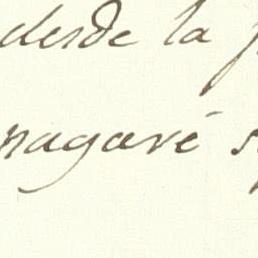 desde la
nagaré